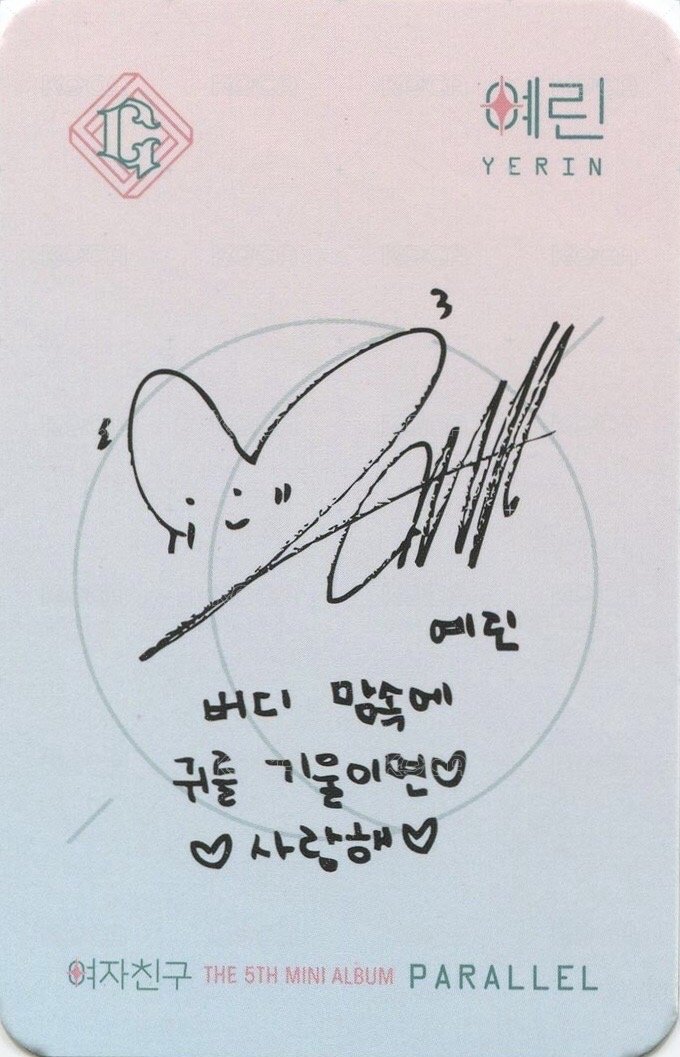 G
예린
YERIN
예린
버디 맘속에
귀를 기울이면♡
♡사랑해♡
여자친구 THE 5TH MINI ALBUM PARALLEL